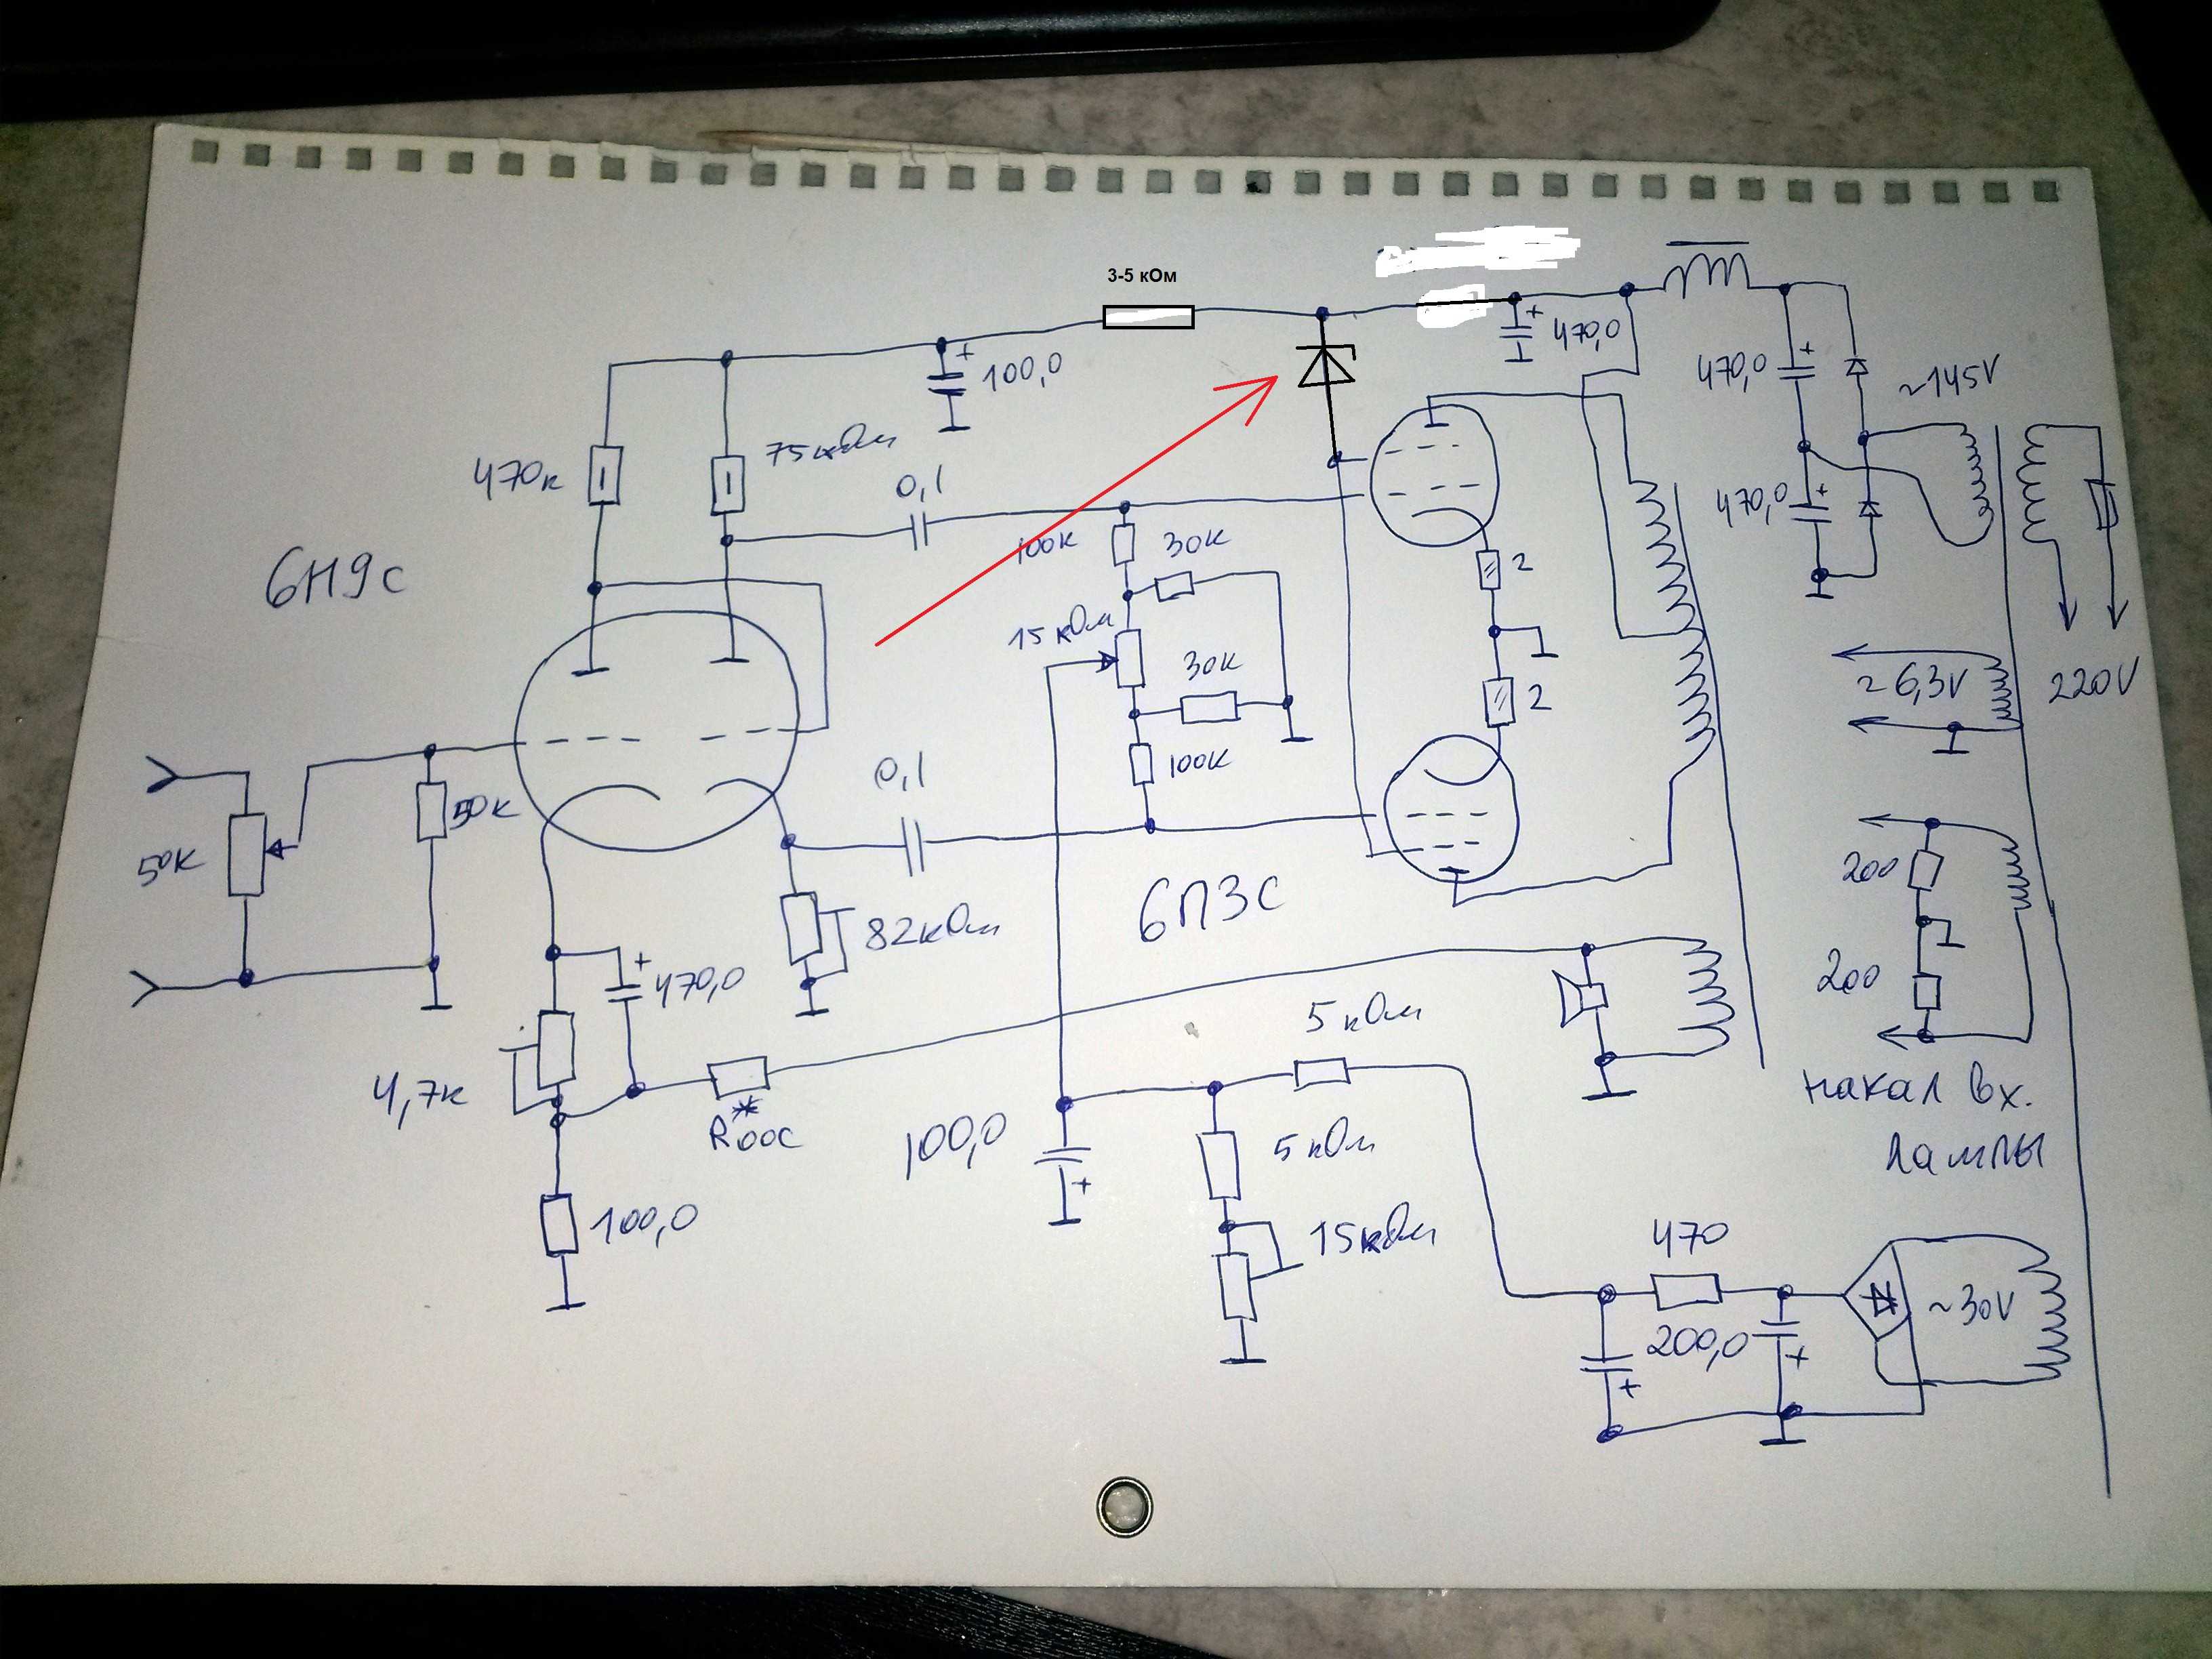 3-5 кОм
470,0
100,0
470,0
~145V
470к
75кОм
0,1
470,0
6Н9с
100к
30к
2
15кОм
30к
2
≈6,3V
220V
50к
50к
0,1
100к
200
82кОм
6П3С
470,0
200
5кОм
4,7к
накал вх.
лампы
Rоос*
100,0
5кОм
100,0
15кОм
470
200,0
~30V
+
+
+
+
+
+
+
+